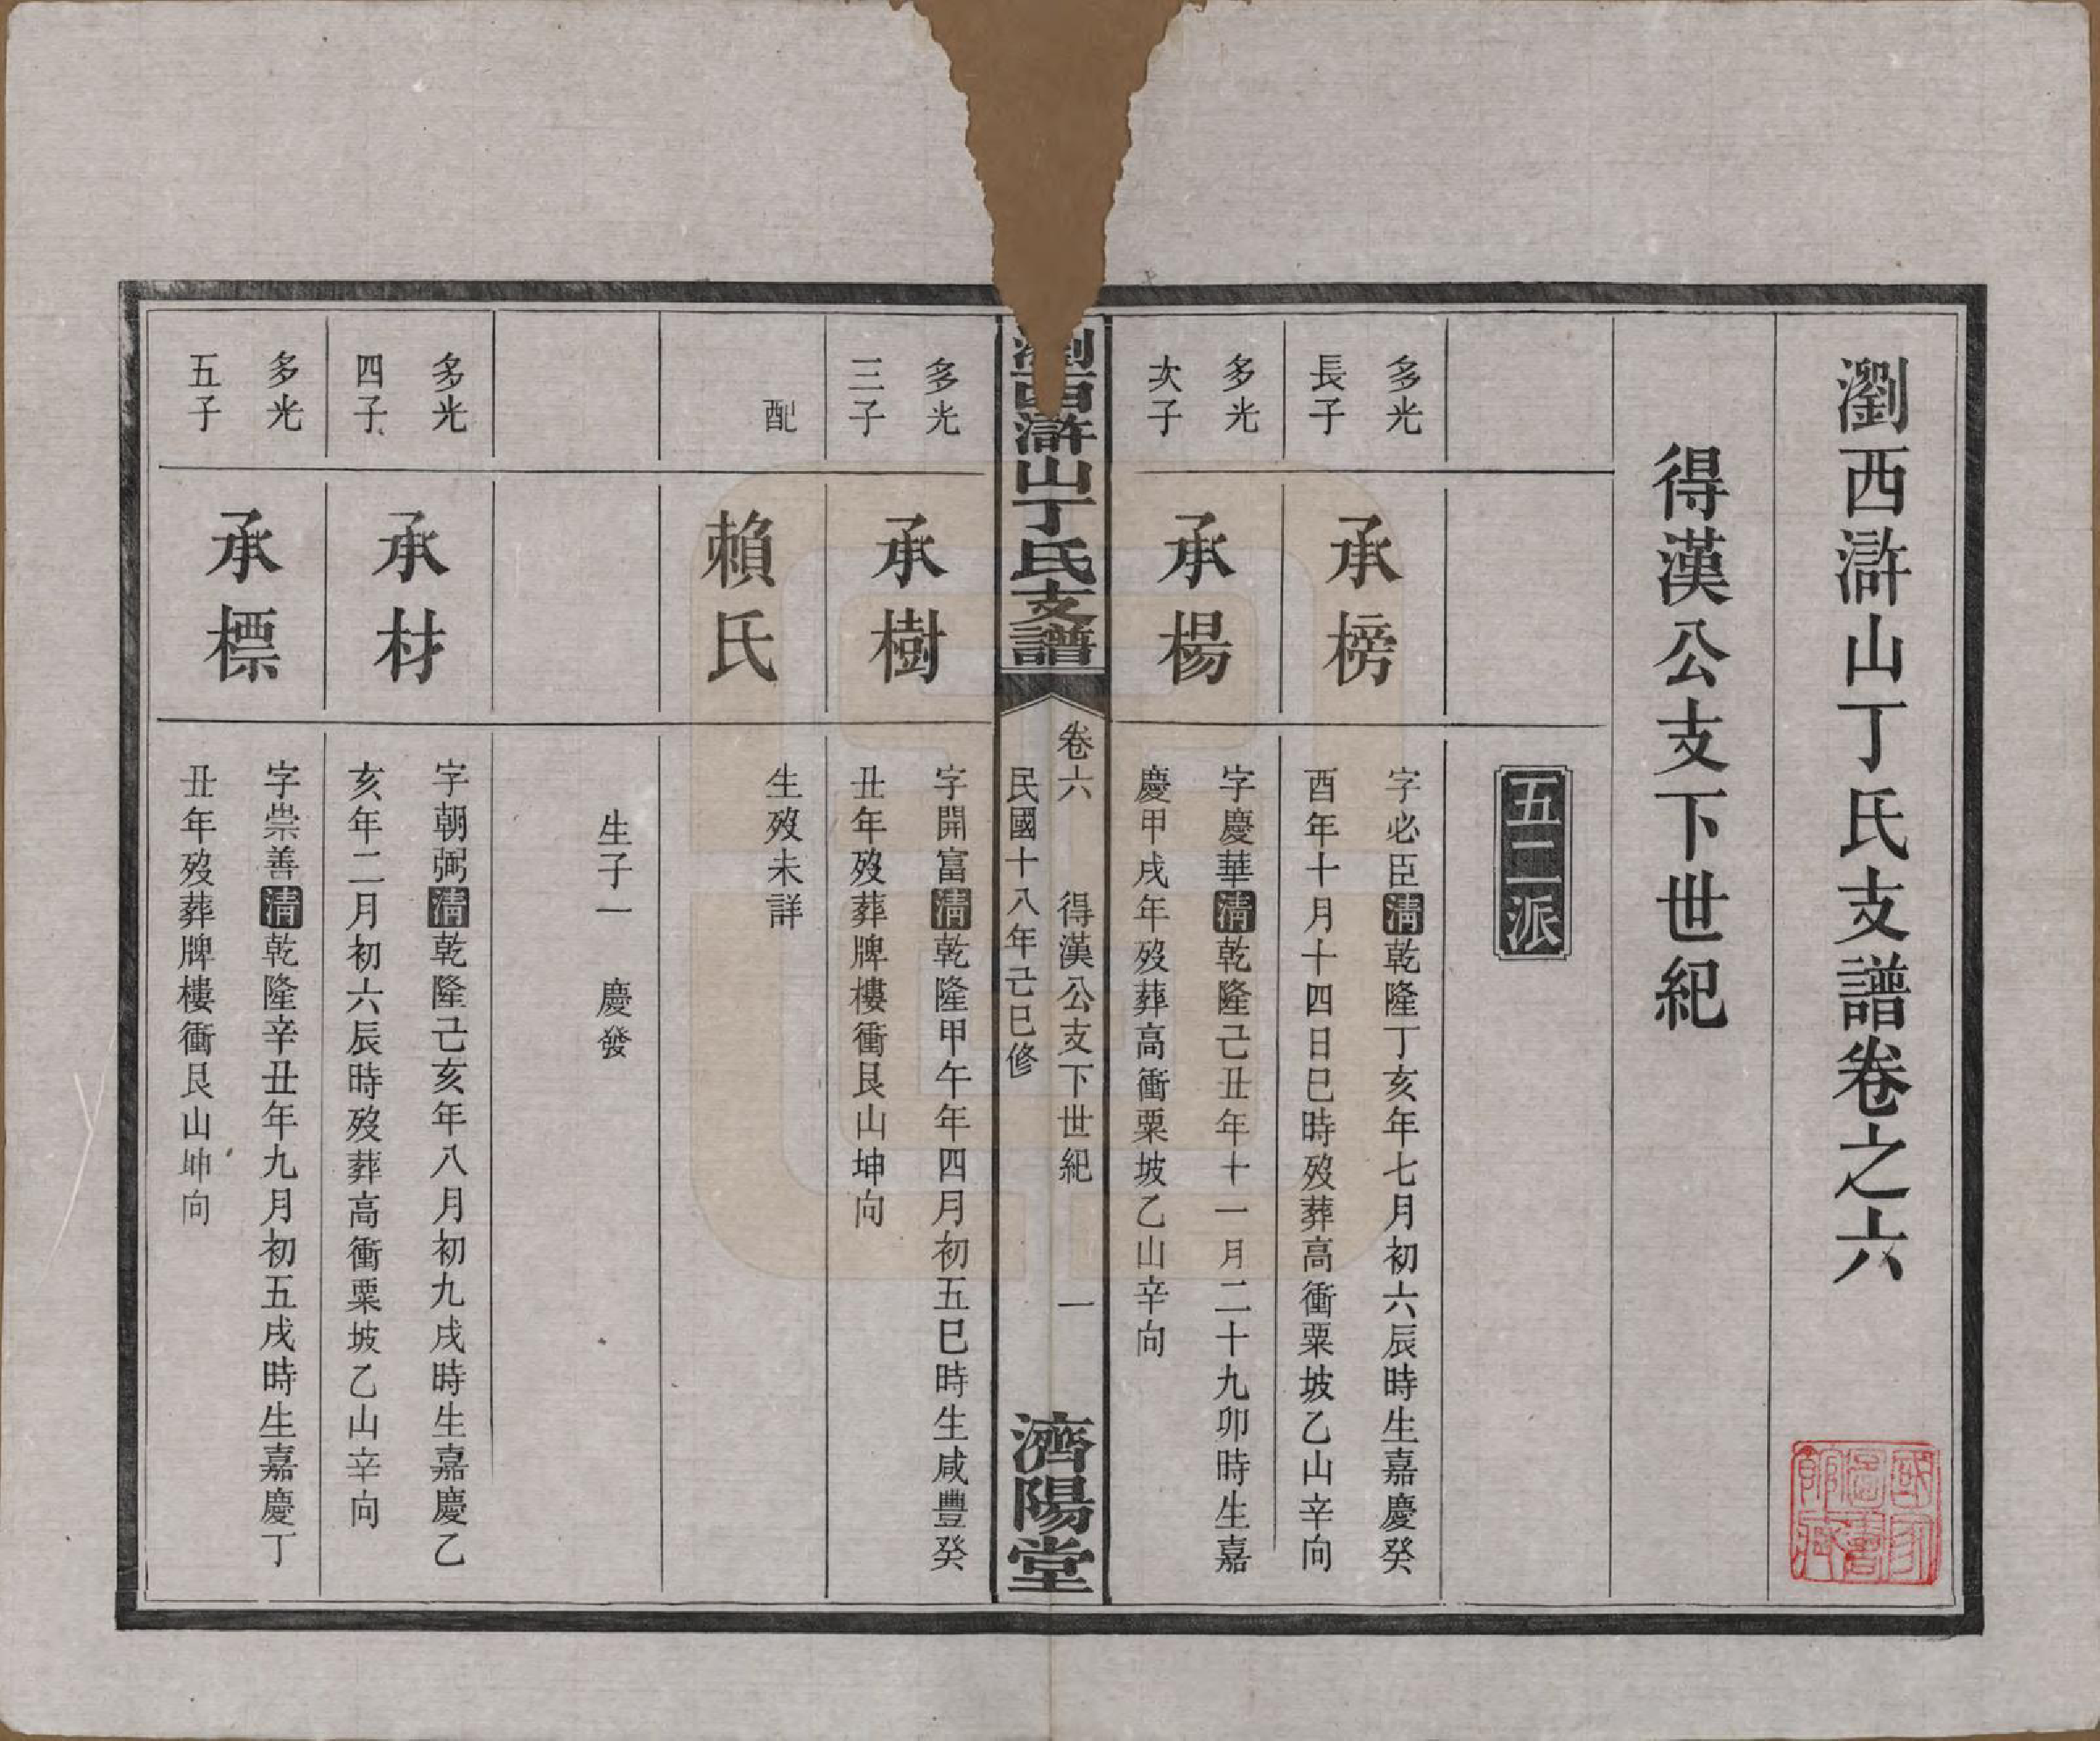 瀏西滸山丁氏支譜卷之六
得漢公支下世紀
五二派
多光
長子
承榜
字必臣清乾隆丁亥年七月初六辰時生嘉慶癸
酉年十月十四日巳時歿葬高衝粟坡乙山辛向
多光
次子
承楊
字慶華清乾隆己丑年十一月二十九卯時生嘉
慶甲戌年歿葬高衝粟坡乙山辛向
瀏西滸山丁氏支譜
卷六　得漢公支下世紀　一
民國十八年己巳修
濟陽堂
多光
三子
承樹
字開富清乾隆甲午年四月初五巳時生咸豐癸
丑年歿葬牌樓衝艮山坤向
配
賴氏
生歿未詳
生子一　慶發
多光
四子
承材
字朝弼清乾隆己亥年八月初九戌時生嘉慶乙
亥年二月初六辰時歿葬高衝粟坡乙山辛向
多光
五子
承標
字崇善清乾隆辛丑年九月初五戌時生嘉慶丁
丑年歿葬牌樓衝艮山坤向
國家圖書館藏